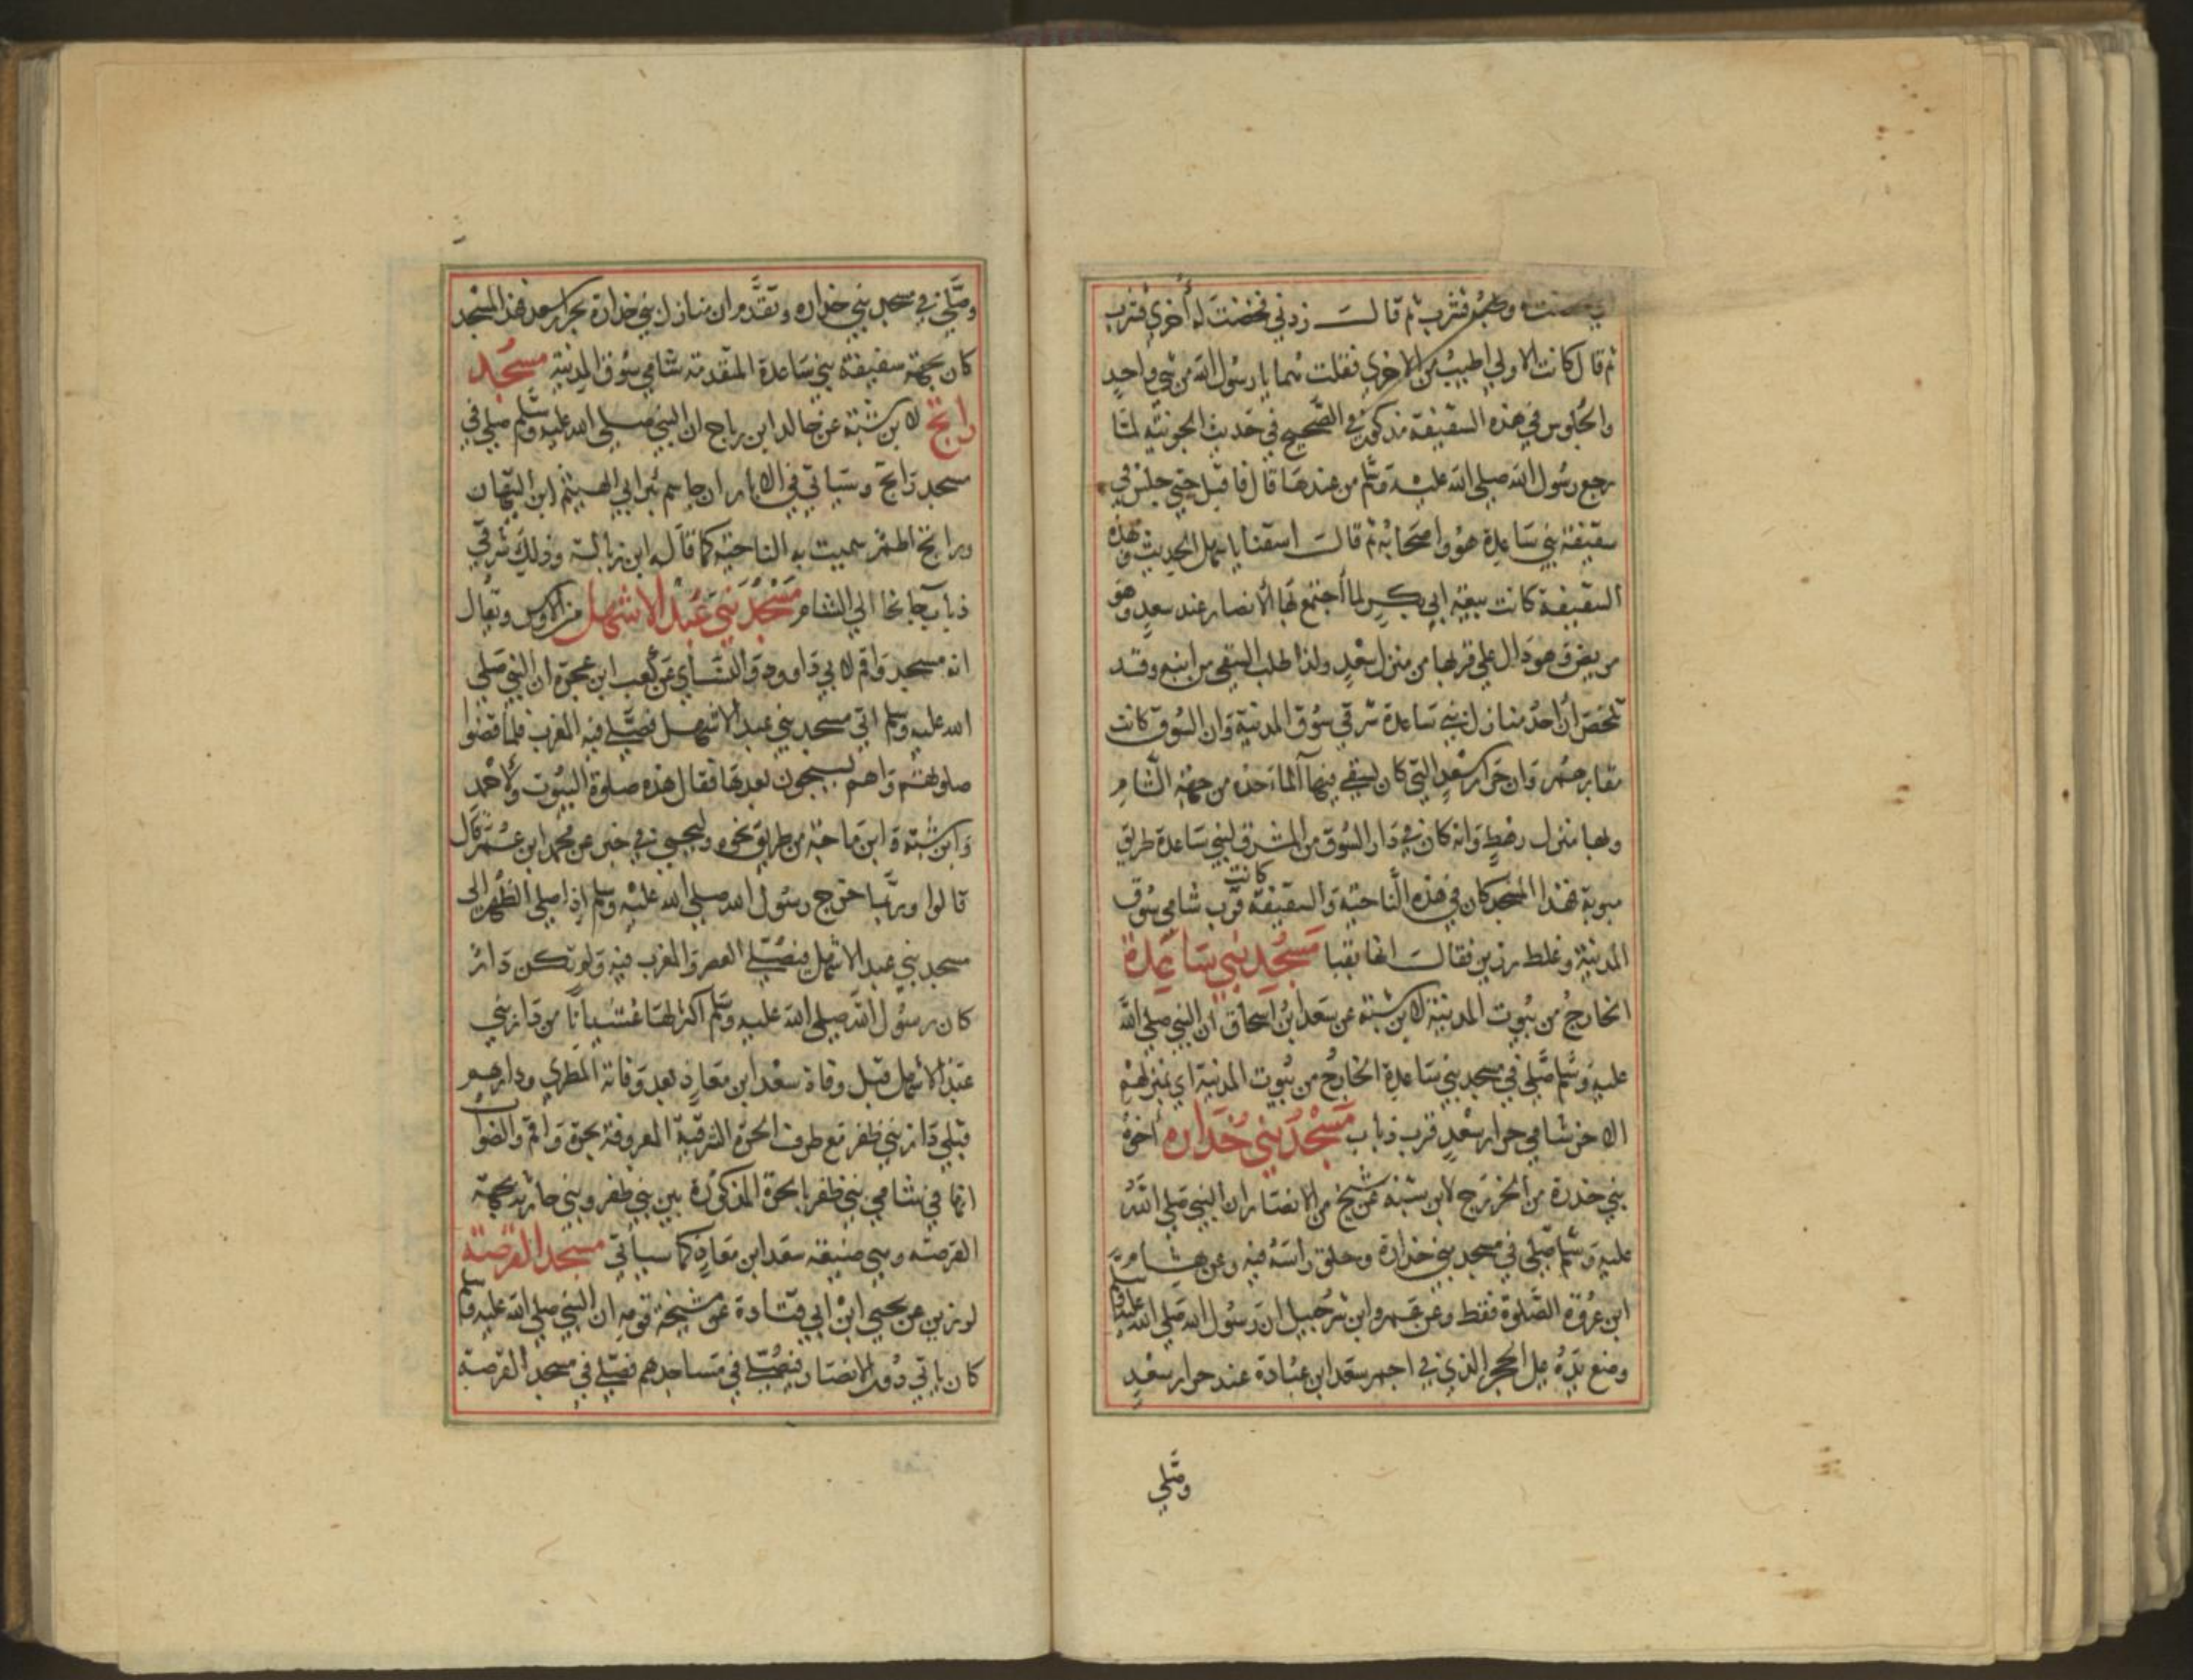 وطبه فشرب ثم قالت زدني فخضت له أخري فشرب
ثم قال كانت الاولي اطيب من الاخري فقلت هما يا رسول الله من شي واحد
والجلوس في هذه السقيفة مذكور في الصحيح في حديث الجونيه لما
رجع رسول الله صلي الله عليه وسلم من عندها قال فاقبل حتي جلس في
سقيفة بني ساعدة هو واصحابه ثم قالت اسقنا يا سهل الحديث وهذه
السقيفة كانت بيعة ابي بكر لما أجتمع بها الأنصار عند سعد وهو
مريض وهو دال علي قربها من منزل سعد ولذا طلب السقي من ابنه وقد
تلخص أن احد منازل بني ساعدة شرقي سوق المدنية وان السوق كانت
مقابرهم وان جرار سعد التي كان يسقي فيها ألماء حده من جهة الشام
ولها منزل رهط وانه كان في دار السوق من المشرق لبني ساعدة طريق
مبوبة فهذا المسجد كان في هذه الناحية والسقيفة كانت قرب شامي سوق
المدنية وغلط رزين فقالت انها بقبا مسجد بني ساعدة
الخارج من بيوت المدنية لابن شبة عن سعد ابن اسحاق ان النبي صلي الله
عليه وسلم صلي في مسجد بني ساعدة الخارج من بيوت المدنية اي بمنزلهم
الاخر شامي جرار سعد قرب ذباب مسجد بني خداره أخوة
بني خدرة من الخزرج لابن شبة عن شيخ من الانصار ان النبي صلي الله
عليه وسلم صلي في مسجد بني خدارة وحلق راسه فيه وعن هشام
ابن عروة الصلوة فقط وعن عمرو ابن شرحبيل ان رسول الله صلي الله عليه وسلم
وضع يده علي الحجر الذي في اجم سعد ابن عبادة عند جرار سعد
وصلي
وصلي في مسجد بني خداره وتقدم ان منازل بني خدارة بجرار سعد فهذا المسجد
كان بجهة سقيفة بني ساعدة المتقدمة شامي سوق المدنية مسجد
راتج لابن شبة عن خالد ابن رباح ان النبي صلي الله عليه وسلم صلي في
مسجد راتج وسياتي في الابار ان جاسم بئر ابي الهيثم ابن التيهان
وراتج اطم سميت به الناحية كما قاله ابن زبالة وذلك شرقي
ذباب جانحا الي الشام مسجد بني عبد الاشهل من الاوس ويقال
انه مسجد واقم لابي داوود والنسأي عن كعب ابن عجرة ان النبي صلي
الله عليه وسلم اتي مسجد بني عبد الاشهل فصلي فيه المغرب فلما قضوا
صلوتهم راهم يسبحون بعدها فقال هذه صلوة البيوت ولاحمد
وابن شبة وابن ماجة من طريق نحوه وليحيي في خبر عن محمد ابن عمر قال
قالوا وربما خرج رسول الله صلي الله عليه وسلم اذا صلي الظهر الي
مسجد بني عبد الاشهل فيصلي العصر والمغرب فيه ولم تكن دار
كان رسول الله صلي الله عليه وسلم اكثر لها غشيانا من دار بني
عبد الأشهل قبل وفاة سعد ابن معاذ وبعد وفاته المطري ودارهم
قبلي دار بني ظفر مع طرف الحرة الشرقية المعروفة بحرة واقم والصواب
انها في شامي بني ظفر بالحرة المذكورة بين بني ظفر وبني حارثة بجهة
القرصة وهي ضيعة سعد ابن معاذ كما سياتي مسجد القرصة
لرزين عن يحيي ابن ابي قتادة عن مشيخة قومه ان النبي صلي الله عليه وسلم
كان ياتي دور الانصار فيصلي في مساجدهم فصلي في مسجد القرصة